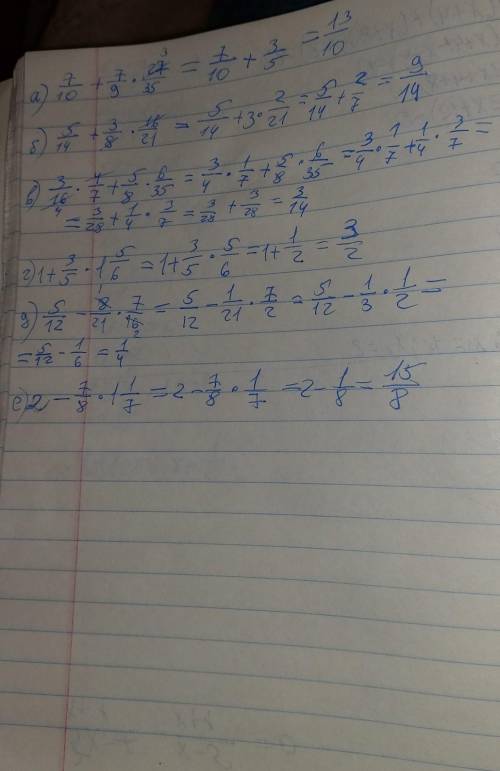 а) 7/10 + 7/9 · 27/35 = 7/10 + 3/5 = 13/10
б) 5/14 + 3/8 · 16/21 = 5/14 + 3 · 2/21 = 5/14 + 2/7 = 9/14
в) 3/16 · 4/7 + 5/8 · 6/35 = 3/4 · 1/7 + 5/8 · 6/35 = 3/4 · 1/7 + 1/4 · 3/7 =
= 3/28 + 1/4 · 3/7 = 3/28 + 3/28 = 3/14
г) 1 + 3/5 · 1 5/6 = 1 + 3/5 · 5/6 = 1 + 1/2 = 3/2
д) 5/12 - 8/21 · 7/16 = 5/12 - 1/21 · 7/2 = 5/12 - 1/3 · 1/2 =
= 5/12 - 1/6 = 1/4
е) 2 - 7/8 · 1 1/7 = 2 - 7/8 · 1/7 = 2 - 1/8 = 15/8